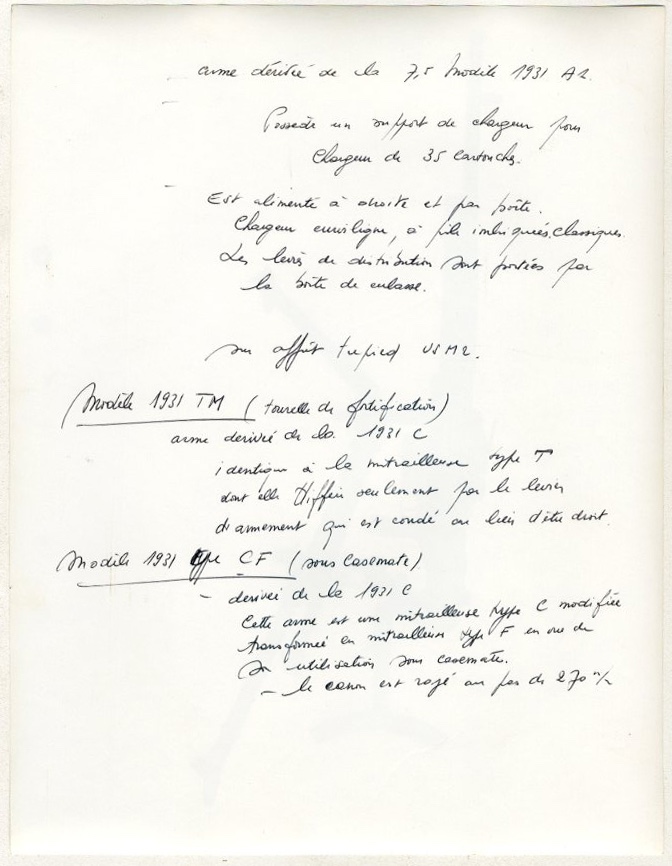 arme dérivée de la 7,5 Modèle 1931 A2.
Possède un support de chargeur pour
Chargeur de 35 cartouches.
Est alimenté à droite et par boîte.
Chargeur curviligne, à pile imbriquées, classiques.
Les lèvres de distribution sont portées par
la boîte de culasse.
sur affût trépied USM2.
Modèle 1931 TM (tourelle de fortification)
arme derivée de la 1931 C
identique à la mitrailleuse type T
dont elle diffère seulement par le levier
d'armement qui est coudé au lieu d'être droit.
Modèle 1931 type CF (sous Casemate)
- derivée de la 1931 C
Cette arme est une mitrailleuse type C modifiée
transformée en mitrailleuse type F en vue de
son utilisation sous casemate.
- le canon est rayé au pas de 270 m/m